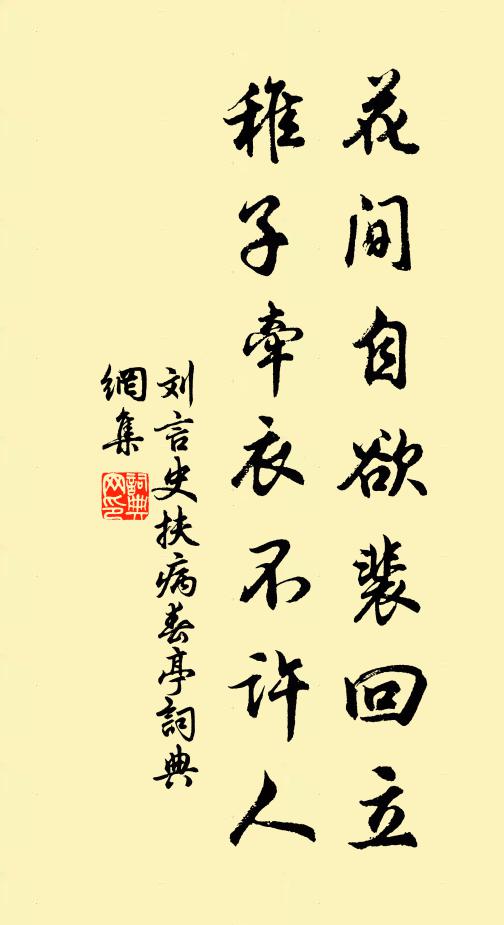 花间自欲裴回立
稚子牵衣不许人
刘言史扶病春亭詞典
網集
詞典网印